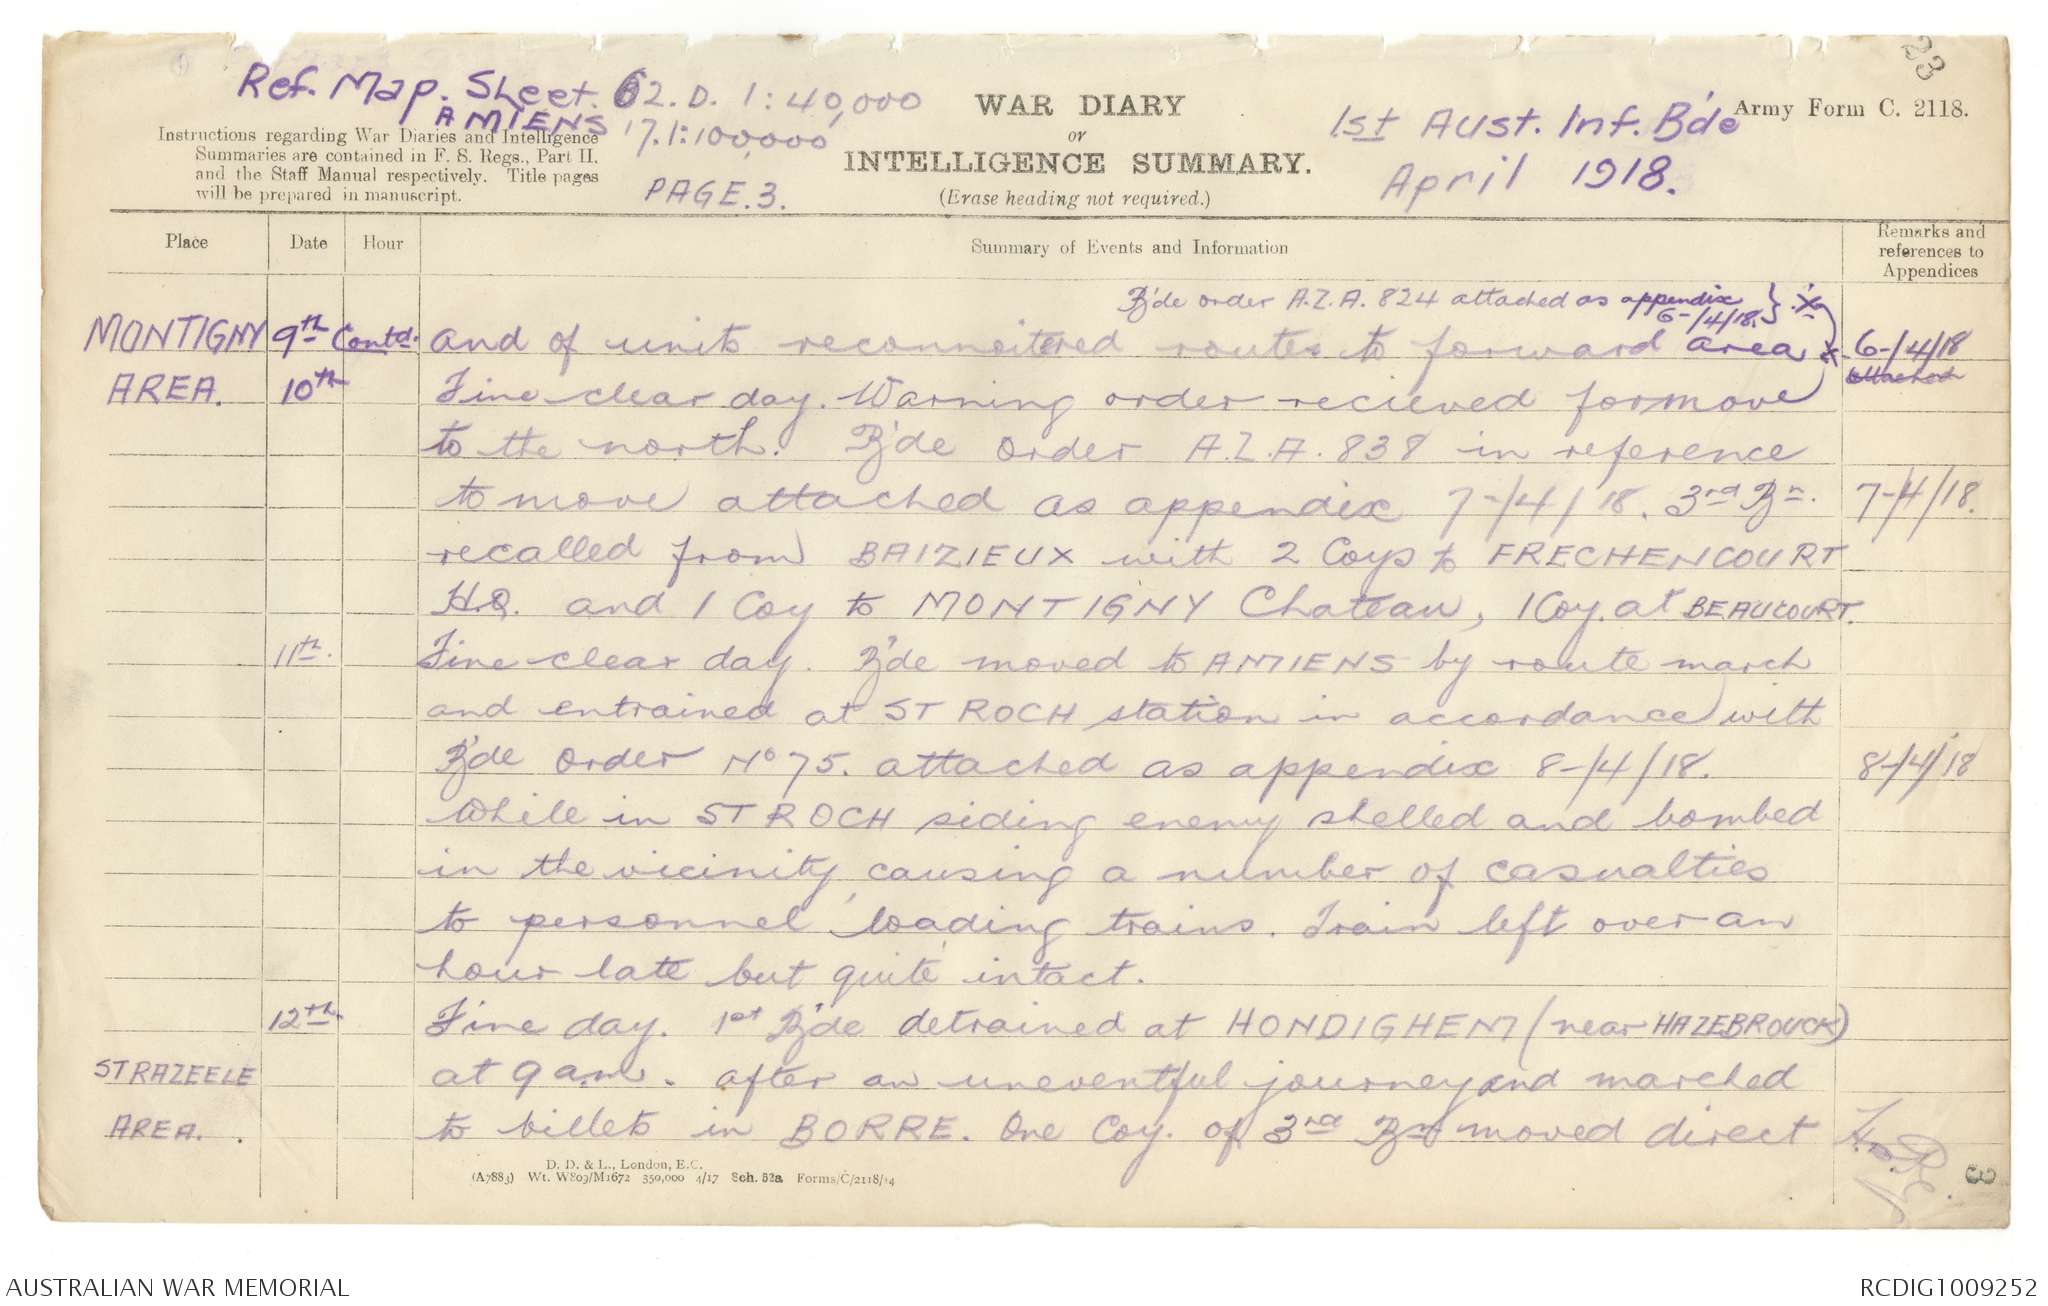 23
Ref. Map. Sheet. 62.D. 1:40,000
AMIENS 17.1:100,000
PAGE.3.
WAR DIARY
or
INTELLIGENCE SUMMARY.
(Erase heading not required.)
1st Aust. Inf. B'de
April 1918.
Army Form C. 2118.
Instructions regarding War Diaries and Intelligence
Summaries are contained in F. S. Regs., Part II.
and the Staff Manual respectively. Title pages
will be prepared in manuscript.
Place Date Hour Summary of Events and Information Remarks and references to Appendices
B'de order A.Z.A. 824 attached as appendix 6-/4/18. } x
MONTIGNY 9th Contd. and of units reconnoitered routes to forward area x 6-/4/18
attached
AREA. 10th Fine clear day. Warning order recieved for move
to the north. B'de order A.Z.A. 838 in reference
to move attached as appendix 7-/4/18. 3rd Bn. 7-/4/18.
recalled from BAIZIEUX with 2 Coys to FRECHENCOURT
H.Q. and 1 Coy to MONTIGNY Chateau, 1 Coy. at BEAUCOURT.
11th. Fine clear day. B'de moved to AMIENS by route march
and entrained at ST ROCH station in accordance with
B'de Order No 75. attached as appendix 8-/4/18. 8-/4/18
While in ST ROCH siding enemy shelled and bombed
in the vicinity, causing a number of casualties
to personnel loading trains. Train left over an
hour late but quite intact.
12th. Fine day. 1st B'de detrained at HONDIGHEM (near HAZEBROUCK)
STRAZEELE at 9 a.m. after an uneventful journey and marched
AREA. to billets in BORRE. One Coy. of 3rd Bn moved direct
D. D. & L., London, E.C.
(A7883) Wt. W809/M1672 350,000 4/17 Sch. 52a Forms/C/2118/14
3
AUSTRALIAN WAR MEMORIAL
RCDIG1009252